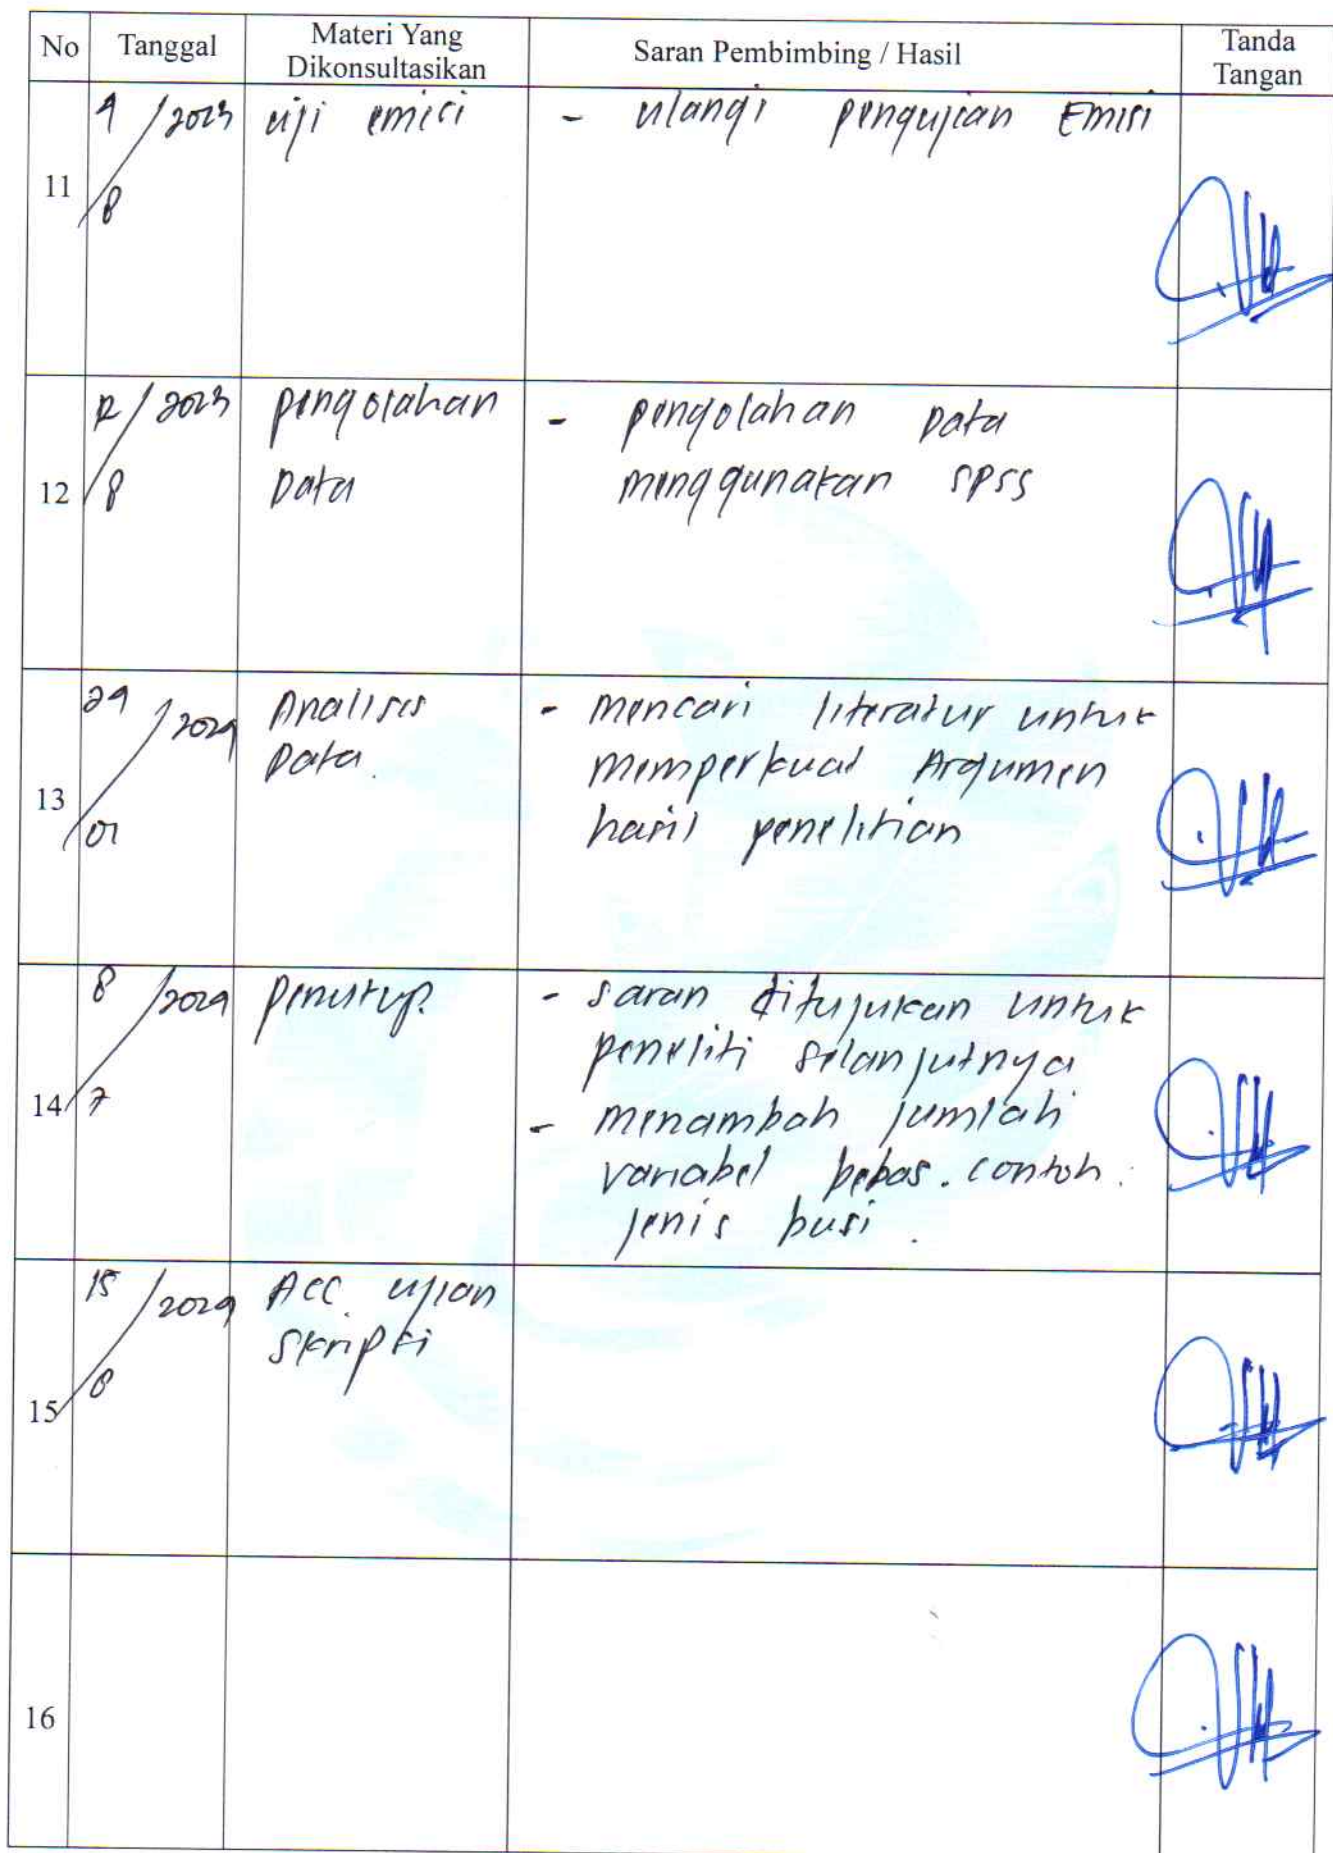 No Tanggal Materi Yang Dikonsultasikan Saran Pembimbing / Hasil Tanda Tangan
11 4/8 2023 uji emisi - ulangi pengujian Emisi
12 12/8 2023 pengolahan - pengolahan Data
Data menggunakan SPSS
13 24/01 2024 Analisis - mencari literatur untuk
Data. memperkuat Argumen
hasil penelitian
14 8/7 2024 penutup. - saran ditujukan untuk
peneliti selanjutnya
- menambah jumlah
variabel bebas. contoh :
jenis busi.
15 15/8 2024 ACC ujian
skripsi
16